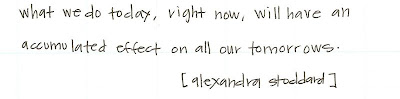 what we do today, right now, will have an
accumulated effect on all our tomorrows.
[alexandra stoddard]